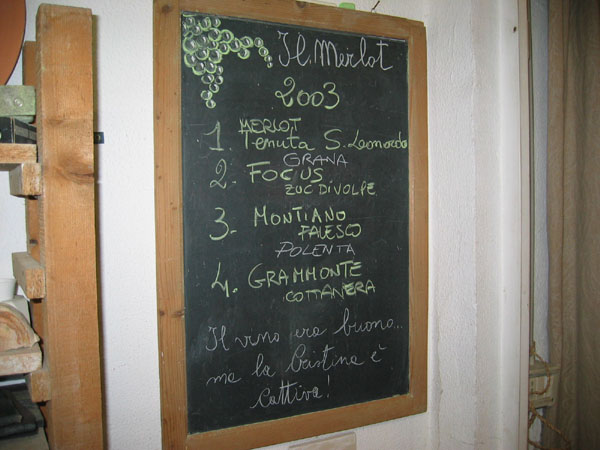 Il Merlot
2003
1. MERLOT
Tenuta S. Leonardo
GRANA
2. FOCUS
ZUC DIVOLPE
3- MONTIANO
FALESCO
POLENTA
4. GRAMMONTE
COTTANERA
Il vino era buono...
ma la Cristina è
Cattiva!